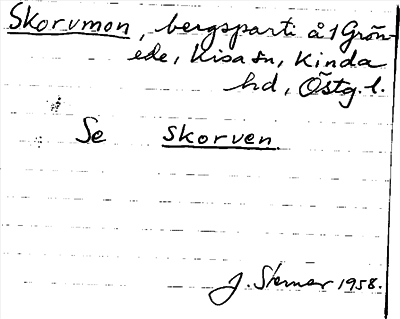 Skorvmon, bergsparti å 1 Grön-
ede, Kisa sn, Kinda
hd, Östg. l.
Se Skorven.
J. Sterner 1958.